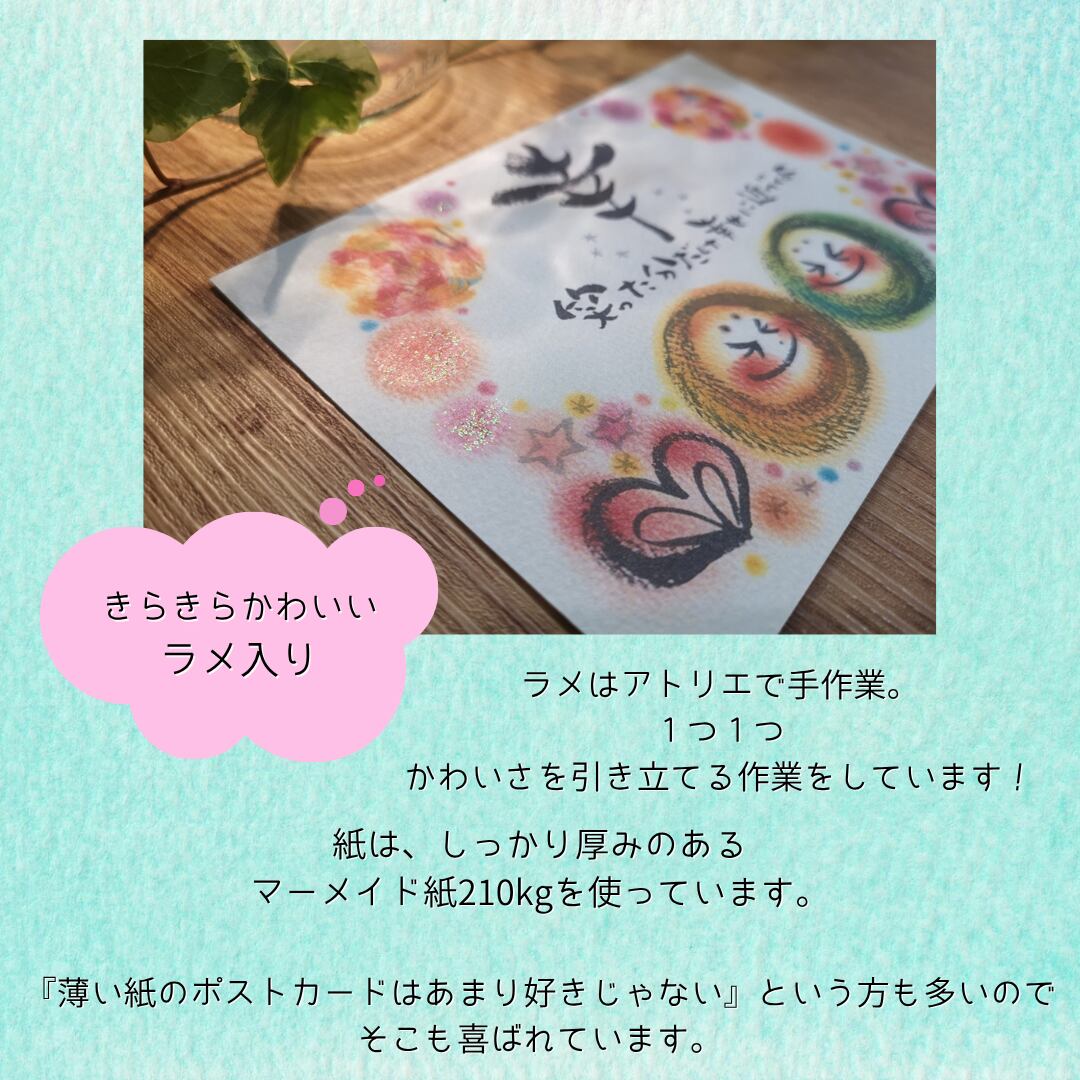 笑ったからだ
きらきらかわいい
ラメ入り
ラメはアトリエで手作業。
１つ１つ
かわいさを引き立てる作業をしています！
紙は、しっかり厚みのある
マーメイド紙210kgを使っています。
『薄い紙のポストカードはあまり好きじゃない』という方も多いので
そこも喜ばれています。